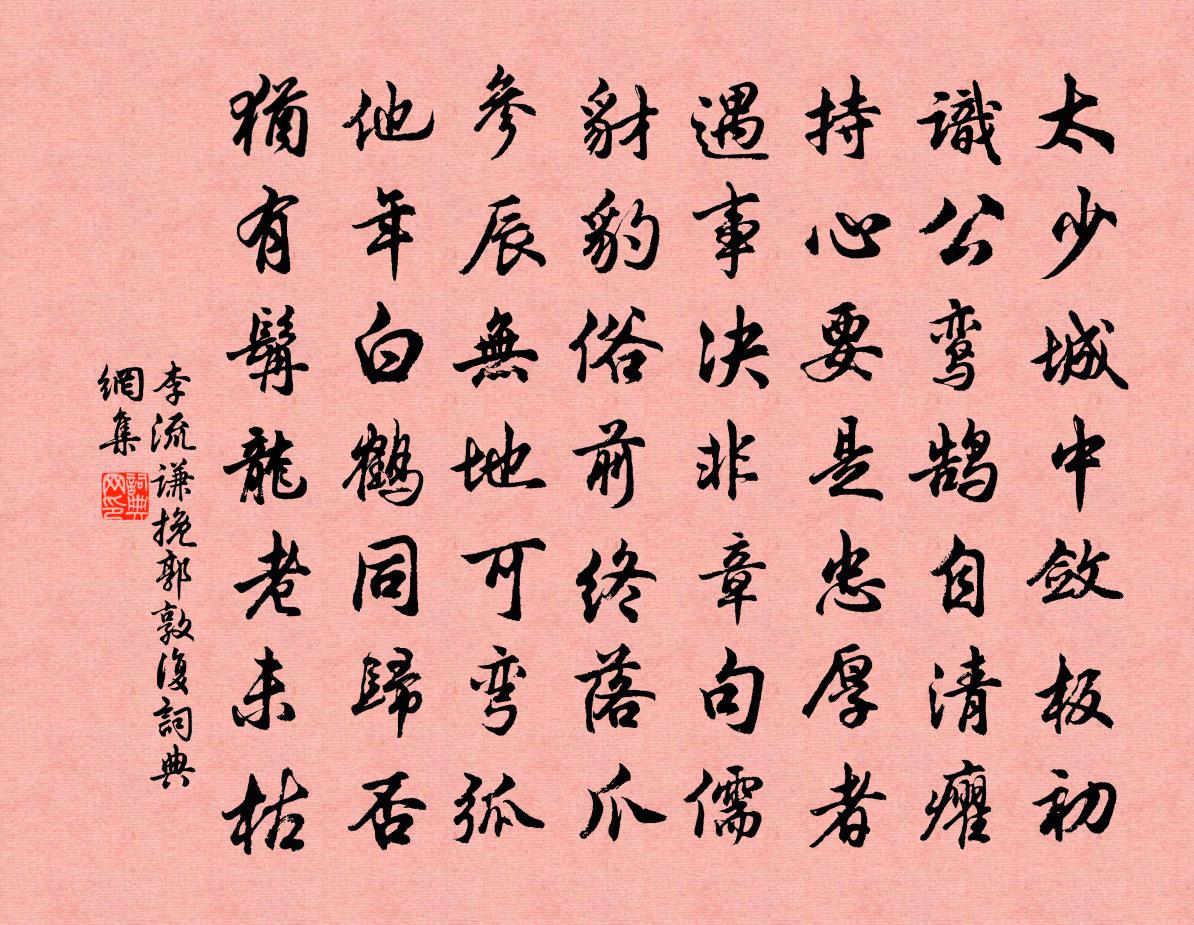 太少城中斂板初
識公鸾鹄自清癯
持心要是忠厚者
遇事決非章句儒
豺豹俗前终落爪
參辰無地可弯弧
他年白鶴同歸否
猶有髯龍老未枯
李流谦挽郭敦復詞典
網集
詞典网印